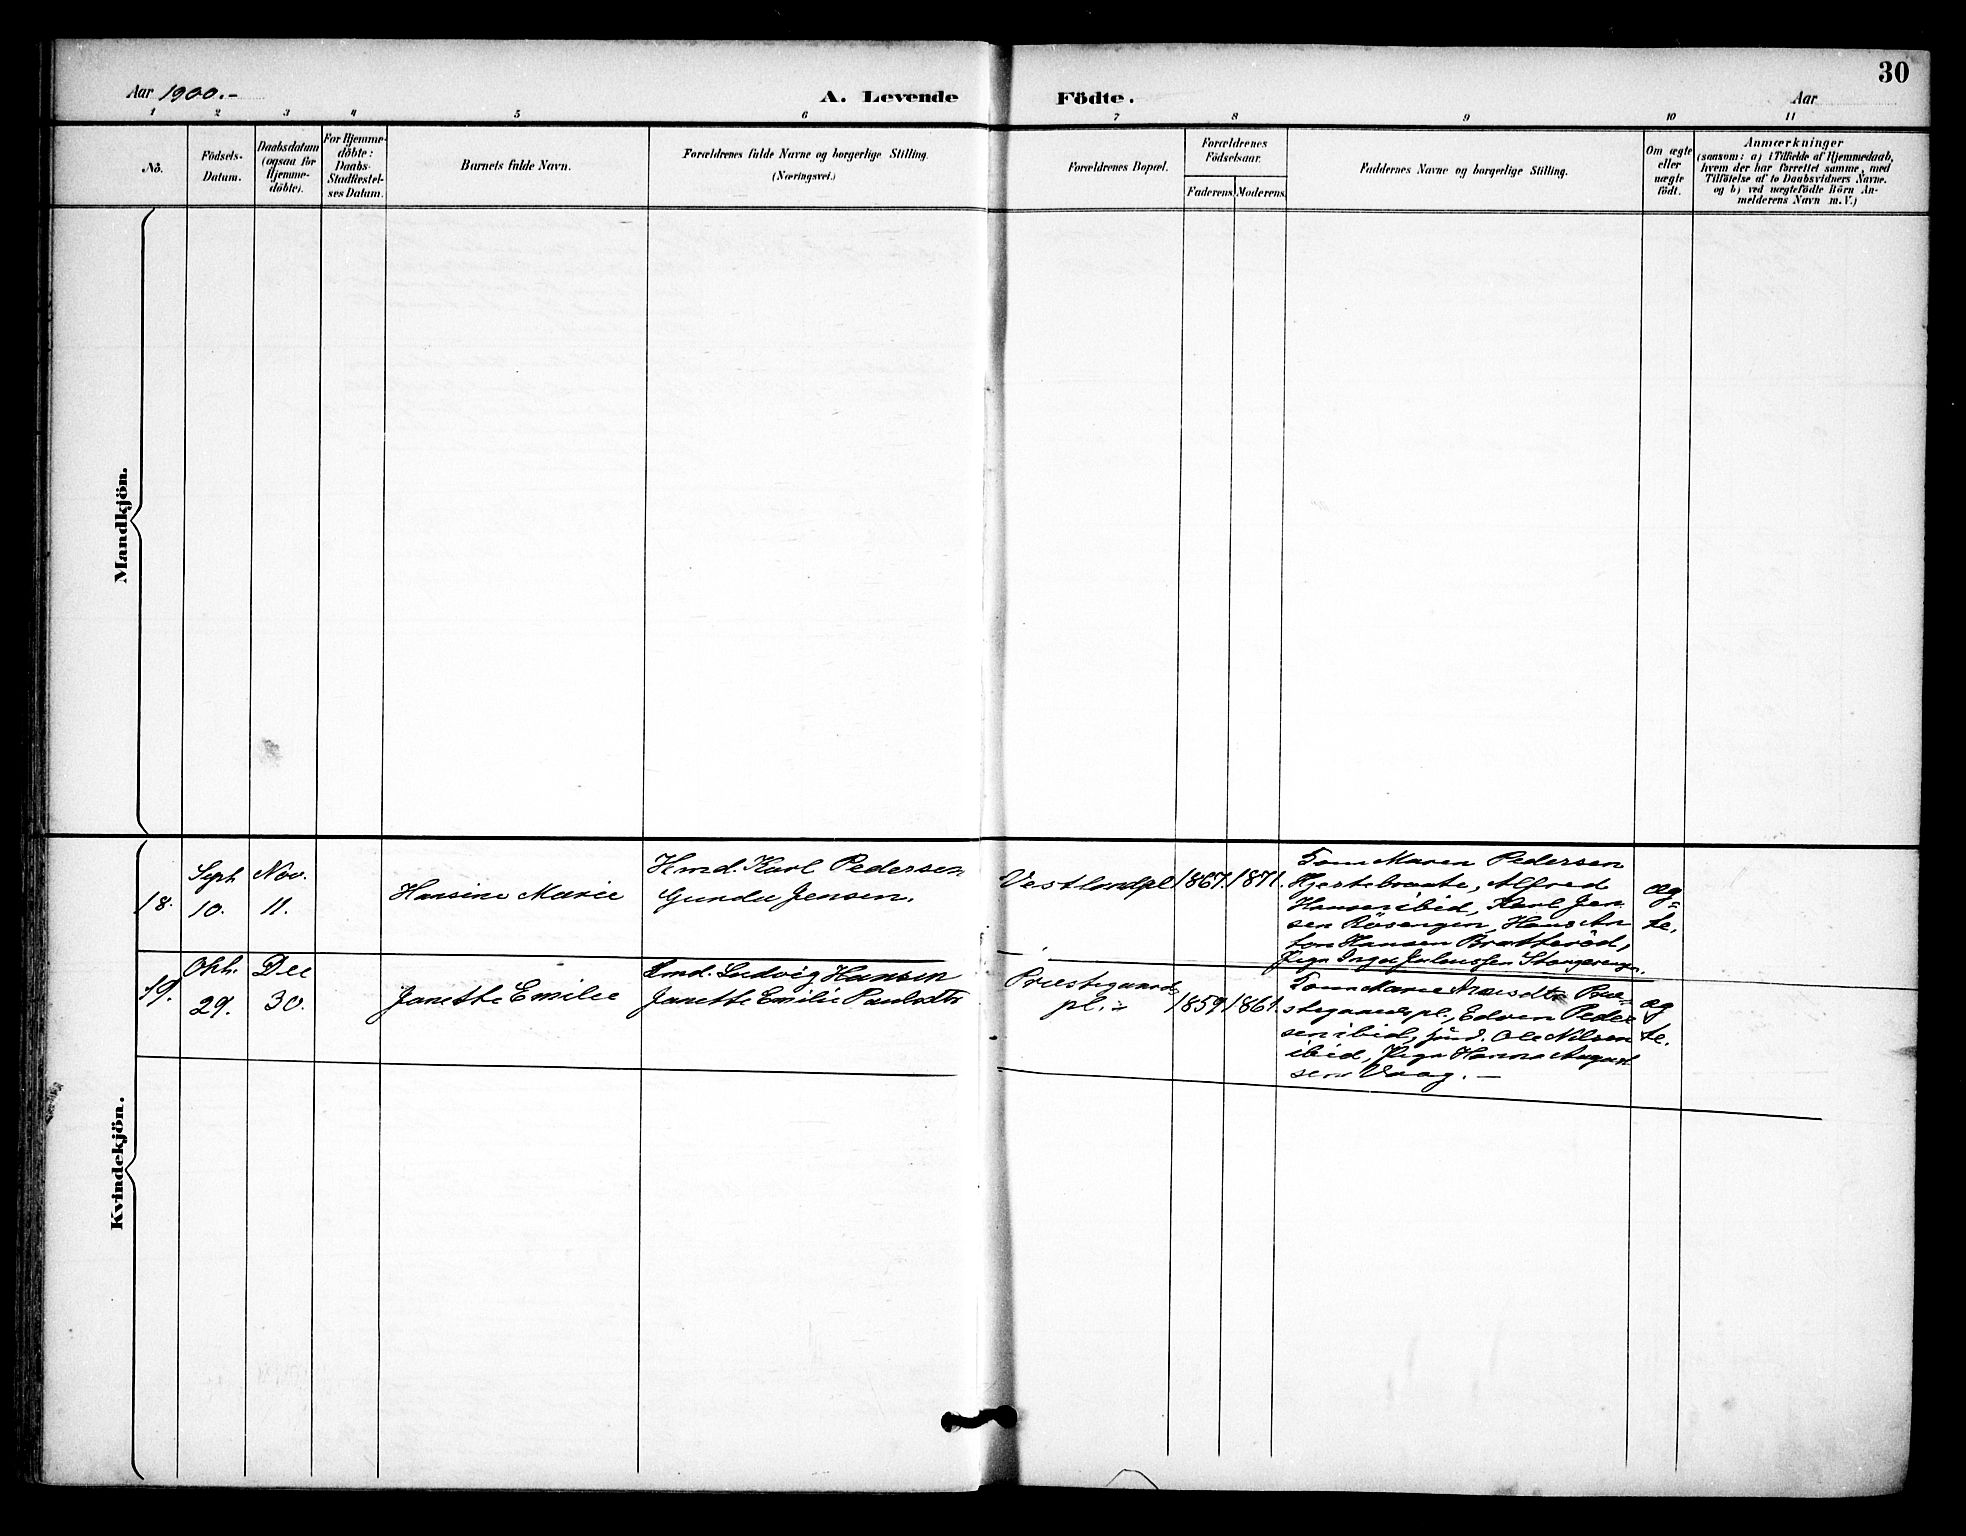 30
Aar 1900.-
A. Levende Födte.
Aar
1 2 3 4 5 6 7 8 9 10 11
No.
Födsels-
Datum.
Daabsdatum
(ogsaa for
Hjemme-
döbte).
For Hjemme-
döbte:
Daabs-
Stadfæstel-
ses Datum.
Barnets fulde Navn.
Forældrenes fulde Navne og borgerlige Stilling.
(Næringsvei.)
Forældrenes Bopæl.
Forældrenes
Födselsaar.
Faderens. Moderens.
Faddernes Navne og borgerlige Stilling.
Om ægte
eller
uægte
födt.
Anmærkninger
(saasom: a) i Tilfælde af Hjemmedaab,
hvem der har forrettet samme, med
Tilföielse af to Daabsvidners Navne.
og b) ved uægtefödte Börn An-
melderens Navn m. V.)
Mandkjön.
Kvindekjön.
18.
Sept
10.
Nov.
11.
Hansine Marie
Hmd. Karl Pedersen
Gunda Jensen.
Vestlandpl
1867. 1871.
Tom. Maren Pedersen
Hjertebraate, Alfred
Hansen ibid, Karl Jen
sen Rösengen, Hans An
ton Hansen Bratteröd,
Pige Inga Julenssen
æg=
te.
19.
Okt.
29.
Dec
30.
Janette Emilie
Hmd. Ludvig Hansen
Janette Emilie Paulsdtr
Præstegaards
pl.
1859. 1861.
Tom. Marie Præ=
stegaardspl., Edvin Peder
sen ibid, Ole Nilsen
ibid, Pige Hanna August
sen Vaag. —
æg
te.